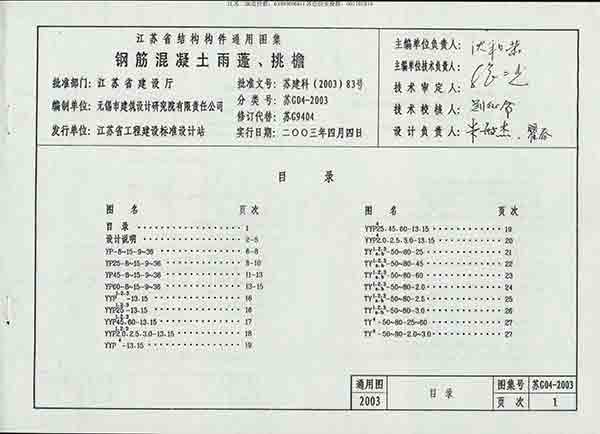 江苏省结构构件通用图集
钢筋混凝土雨蓬、挑檐
批准部门：江苏省建设厅
批准文号：苏建科(2003)83号
编制单位：无锡市建筑设计研究院有限责任公司
分类号：苏G04-2003
修订代替：苏G9404
发行单位：江苏省工程建设标准设计站
实行日期：二〇〇三年四月四日
主编单位负责人：
主编单位技术负责人：
技术审定人：
技术校核人：
设计负责人：
目录
图名 页次
目录 1
设计说明 2-5
YP-8~15-9~36 6-8
YP25-8~15-9~36 8-10
YP45-8~15-9~36 11-13
YP60-8~15-9~36 13-15
YYP1.2.3-13.15 16
YYP25 1.2.3-13.15 16
YYP45.60 1.2.3-13.15 17
YYP2.0.2.5.3.0 1.2.3-13.15 18
YYP4-13.15 19
图名 页次
YYP25.45.60-13.15 19
YYP2.0.2.5.3.0-13.15 20
-50~80-25 21
-50~80-45 22
-50~80-60 23
-50~80-2.0 24
-50~80-2.5 25
-50~80-3.0 26
TY4-50~80-25~60 27
TY4-50~80-2.0~3.0 27
通用图 2003
目录
图集号 苏G04-2003
页次 1